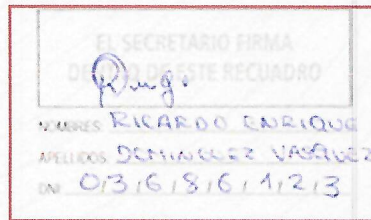 EL SECRETARIO FIRMA
DENTRO DE ESTE RECUADRO
NOMBRES: RICARDO ENRIQUE
APELLIDOS: DOMINGUEZ VASQUEZ
DNI: 03686123